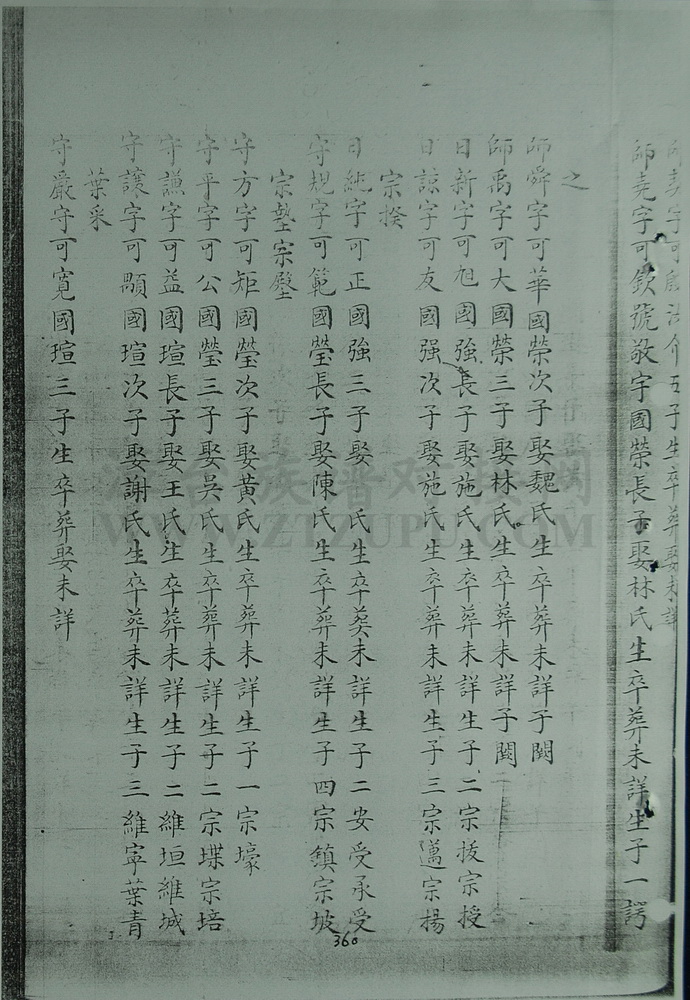 師堯字可欽號敬宇國榮長子娶林氏生卒葬未詳生子一諤
之
師舜字可華國榮次子娶魏氏生卒葬未詳子闕
師禹字可大國榮三子娶林氏生卒葬未詳子闕
日新字可旭國強長子娶施氏生卒葬未詳生子二宗拔宗授
日諒字可友國强次子娶施氏生卒葬未詳生子三宗邁宗揚
宗揆
日純字可正國強三子娶 氏生卒葬未詳生子二安受承受
守規字可範國瑩長子娶陳氏生卒葬未詳生子四宗鎮宗坡
宗塾宗壂
守方字可矩國瑩次子娶黃氏生卒葬未詳生子一宗壕
守平字可公國瑩三子娶吳氏生卒葬未詳生子二宗堞宗培
守謙字可益國瑄長子娶王氏生卒葬未詳生子二維垣維城
守讓字可顒國瑄次子娶謝氏生卒葬未詳生子三維寧葉青
葉采
守嚴字可寬國瑄三子生卒葬娶未詳
360
WWW.ZTZUPU.COM